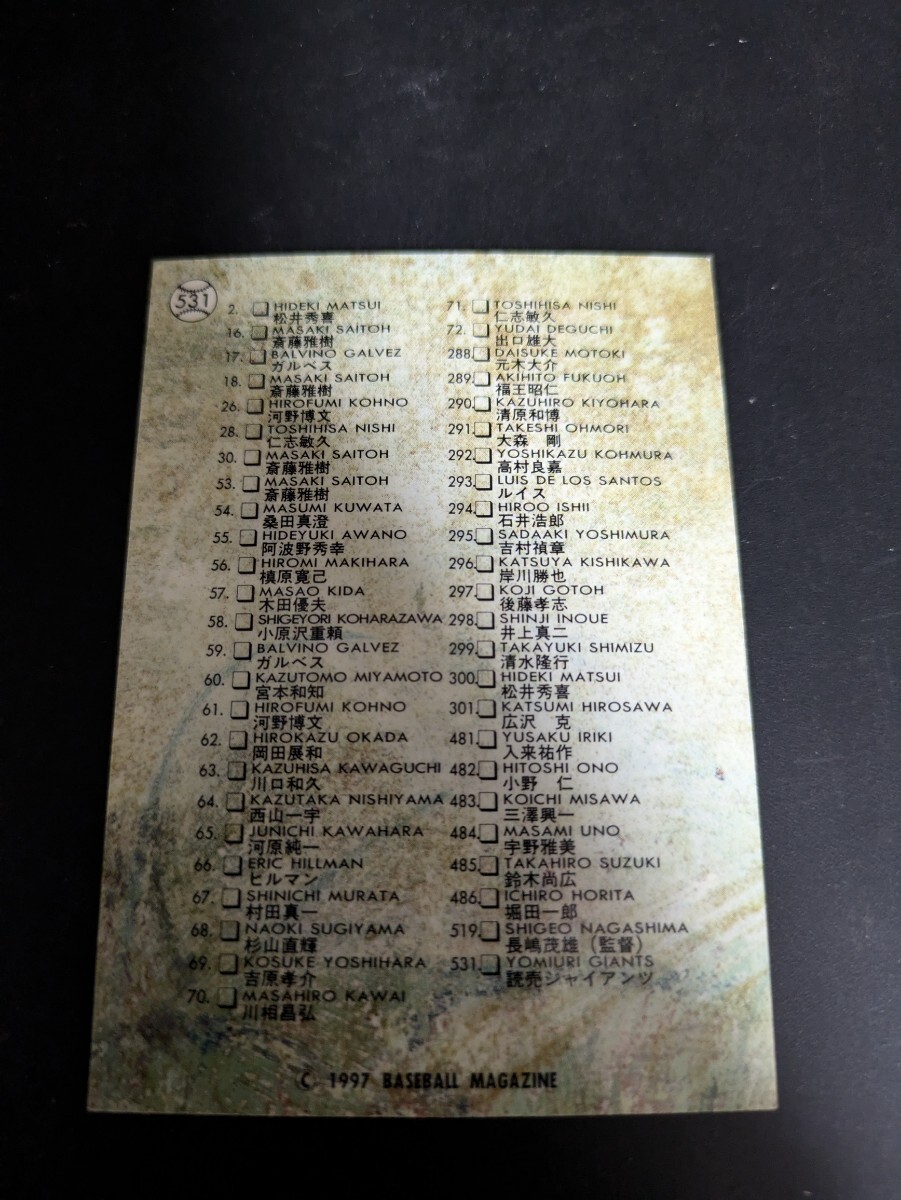 531
2. HIDEKI MATSUI
松井秀喜
16. MASAKI SAITOH
斎藤雅樹
17. BALVINO GALVEZ
ガルベス
18. MASAKI SAITOH
斎藤雅樹
26. HIROFUMI KOHNO
河野博文
28. TOSHIHISA NISHI
仁志敏久
30. MASAKI SAITOH
斎藤雅樹
53. MASAKI SAITOH
斎藤雅樹
54. MASUMI KUWATA
桑田真澄
55. HIDEYUKI AWANO
阿波野秀幸
56. HIROMI MAKIHARA
槙原寛己
57. MASAO KIDA
木田優夫
58. SHIGEYORI KOHARAZAWA
小原沢重頼
59. BALVINO GALVEZ
ガルベス
60. KAZUTOMO MIYAMOTO
宮本和知
61. HIROFUMI KOHNO
河野博文
62. HIROKAZU OKADA
岡田展和
63. KAZUHISA KAWAGUCHI
川口和久
64. KAZUTAKA NISHIYAMA
西山一宇
65. JUNICHI KAWAHARA
河原純一
66. ERIC HILLMAN
ヒルマン
67. SHINICHI MURATA
村田真一
68. NAOKI SUGIYAMA
杉山直輝
69. KOSUKE YOSHIHARA
吉原孝介
70. MASAHIRO KAWAI
川相昌弘
71. TOSHIHISA NISHI
仁志敏久
72. YUDAI DEGUCHI
出口雄大
288. DAISUKE MOTOKI
元木大介
289. AKIHITO FUKUOH
福王昭仁
290. KAZUHIRO KIYOHARA
清原和博
291. TAKESHI OHMORI
大森 剛
292. YOSHIKAZU KOHMURA
高村良嘉
293. LUIS DE LOS SANTOS
ルイス
294. HIROO ISHII
石井浩郎
295. SADAAKI YOSHIMURA
吉村禎章
296. KATSUYA KISHIKAWA
岸川勝也
297. KOJI GOTOH
後藤孝志
298. SHINJI INOUE
井上真二
299. TAKAYUKI SHIMIZU
清水隆行
300. HIDEKI MATSUI
松井秀喜
301. KATSUMI HIROSAWA
広沢 克
481. YUSAKU IRIKI
入来祐作
482. HITOSHI ONO
小野 仁
483. KOICHI MISAWA
三澤興一
484. MASAMI UNO
宇野雅美
485. TAKAHIRO SUZUKI
鈴木尚広
486. ICHIRO HORITA
堀田一郎
519. SHIGEO NAGASHIMA
長嶋茂雄(監督)
531. YOMIURI GIANTS
読売ジャイアンツ
© 1997 BASEBALL MAGAZINE